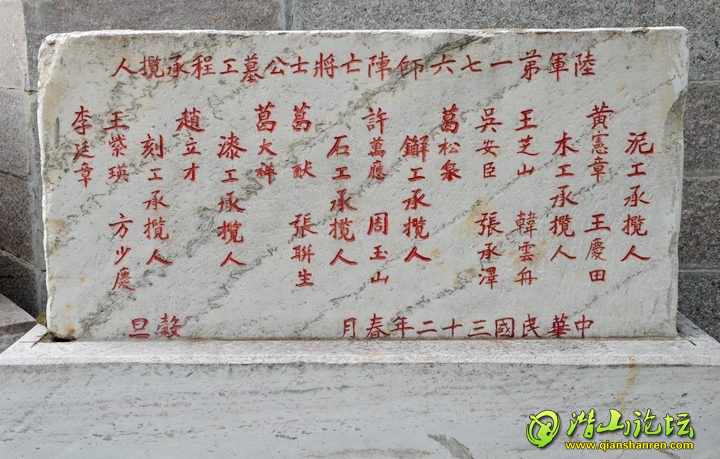 陸軍第一七六師陣亡將士公墓工程承攬人
泥工承攬人
黃憲章 王慶田
木工承攬人
王芝山 韓雲舟
吳安臣 張承澤
葛松泉
鮮工承攬人
許萬應 周玉山
石工承攬人
葛猷 張聯生
葛大祥
漆工承攬人
趙立才
刻工承攬人
王紫瑛 方少慶
李廷章
中華民國三十二年春月 穀旦
潜山论坛
www.qianshanren.com